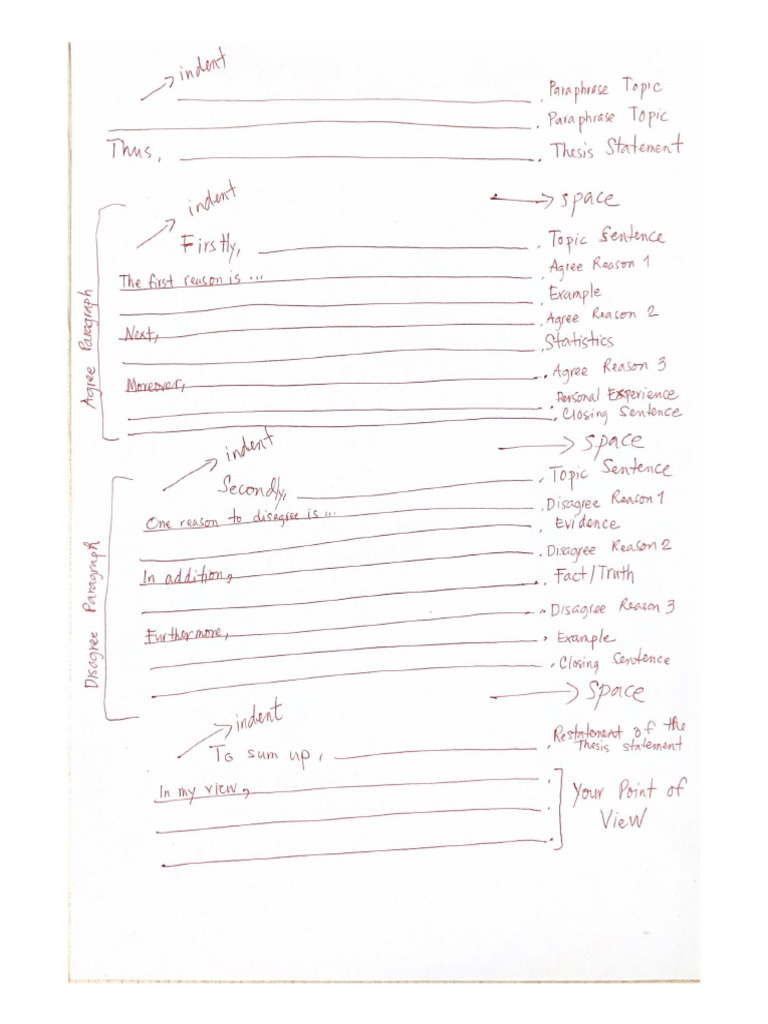 indent
. Paraphrase Topic
. Paraphrase Topic
Thus, . Thesis Statement
space
indent
Firstly, . Topic Sentence
The first reason is ... . Agree Reason 1
. Example
Next, . Agree Reason 2
. Statistics
Moreover, . Agree Reason 3
. Personal Experience
. Closing Sentence
Agree Paragraph
space
indent
Secondly, . Topic Sentence
One reason to disagree is ... . Disagree Reason 1
. Evidence
In addition, . Disagree Reason 2
. Fact/Truth
Furthermore, . Disagree Reason 3
. Example
. Closing Sentence
Disagree Paragraph
space
indent
To sum up, . Restatement of the
Thesis statement
In my view,
Your Point of
View